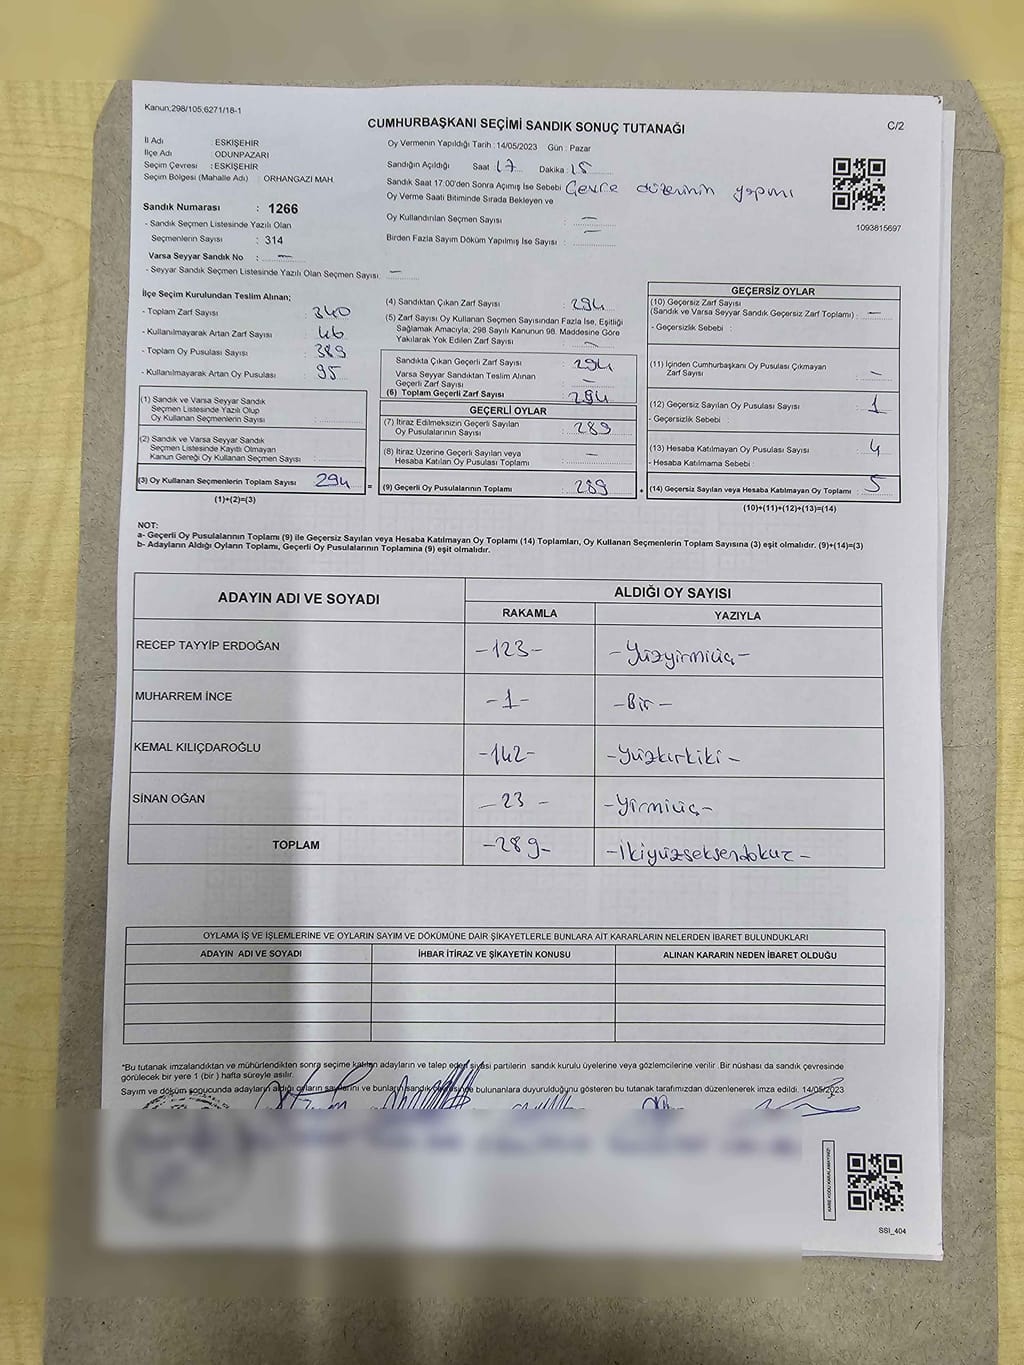 Kanun;298/105;6271/18-1
CUMHURBAŞKANI SEÇİMİ SANDIK SONUÇ TUTANAĞI
C/2
İl Adı : ESKİŞEHİR
İlçe Adı ODUNPAZARI
Seçim Çevresi : ESKİŞEHİR
Seçim Bölgesi (Mahalle Adı) : ORHANGAZI MAH.
Sandık Numarası : 1266
- Sandık Seçmen Listesinde Yazılı Olan
Seçmenlerin Sayısı : 314
Varsa Seyyar Sandık No : —
- Seyyar Sandık Seçmen Listesinde Yazılı Olan Seçmen Sayısı: —
Oy Vermenin Yapıldığı Tarih : 14/05/2023 Gün : Pazar
Sandığın Açıldığı Saat 17 Dakika : 15
Sandık Saat 17:00'den Sonra Açımış İse Sebebi Çevre düzeninin yapımı
Oy Verme Saati Bitiminde Sırada Bekleyen ve
Oy Kullandırılan Seçmen Sayısı : —
Birden Fazla Sayım Döküm Yapılmış İse Sayısı : —
1093815697
İlçe Seçim Kurulundan Teslim Alınan;
- Toplam Zarf Sayısı : 340
- Kullanılmayarak Artan Zarf Sayısı : 46
- Toplam Oy Pusulası Sayısı : 389
- Kullanılmayarak Artan Oy Pusulası : 95
(1) Sandık ve Varsa Seyyar Sandık
Seçmen Listesinde Yazılı Olup
Oy Kullanan Seçmenlerin Sayısı :
(2) Sandık ve Varsa Seyyar Sandık
Seçmen Listesinde Kayıtlı Olmayan
Kanun Gereği Oy Kullanan Seçmen Sayısı :
(3) Oy Kullanan Seçmenlerin Toplam Sayısı 294
(1)+(2)=(3)
(4) Sandıktan Çıkan Zarf Sayısı : 294
(5) Zarf Sayısı Oy Kullanan Seçmen Sayısından Fazla İse, Eşitliği
Sağlamak Amacıyla; 298 Sayılı Kanunun 98. Maddesine Göre
Yakılarak Yok Edilen Zarf Sayısı : —
Sandıkta Çıkan Geçerli Zarf Sayısı : 294
Varsa Seyyar Sandıktan Teslim Alınan
Geçerli Zarf Sayısı : —
(6) Toplam Geçerli Zarf Sayısı : 294
GEÇERLİ OYLAR
(7) İtiraz Edilmeksizin Geçerli Sayılan
Oy Pusulalarının Sayısı : 289
(8) İtiraz Üzerine Geçerli Sayılan veya
Hesaba Katılan Oy Pusulası Toplamı : —
= (9) Geçerli Oy Pusulalarının Toplamı : 289
GEÇERSİZ OYLAR
(10) Geçersiz Zarf Sayısı
(Sandık ve Varsa Seyyar Sandık Geçersiz Zarf Toplamı) : —
- Geçersizlik Sebebi :
(11) İçinden Cumhurbaşkanı Oy Pusulası Çıkmayan
Zarf Sayısı : —
(12) Geçersiz Sayılan Oy Pusulası Sayısı : 1
- Geçersizlik Sebebi :
(13) Hesaba Katılmayan Oy Pusulası Sayısı : 4
- Hesaba Katılmama Sebebi :
+ (14) Geçersiz Sayılan veya Hesaba Katılmayan Oy Toplamı : 5
(10)+(11)+(12)+(13)=(14)
NOT:
a- Geçerli Oy Pusulalarının Toplamı (9) ile Geçersiz Sayılan veya Hesaba Katılmayan Oy Toplamı (14) Toplamları, Oy Kullanan Seçmenlerin Toplam Sayısına (3) eşit olmalıdır. (9)+(14)=(3)
b- Adayların Aldığı Oyların Toplamı, Geçerli Oy Pusulalarının Toplamına (9) eşit olmalıdır.
ADAYIN ADI VE SOYADI ALDIĞI OY SAYISI
RAKAMLA YAZIYLA
RECEP TAYYİP ERDOĞAN -123- -Yüzyirmiüç-
MUHARREM İNCE -1- -Bir-
KEMAL KILIÇDAROĞLU -142- -Yüzkırkiki-
SİNAN OĞAN -23- -Yirmiüç-
TOPLAM -289- -İkiyüzseksendokuz-
OYLAMA İŞ VE İŞLEMLERİNE VE OYLARIN SAYIM VE DÖKÜMÜNE DAİR ŞİKAYETLERLE BUNLARA AİT KARARLARIN NELERDEN İBARET BULUNDUKLARI
ADAYIN ADI VE SOYADI İHBAR İTİRAZ VE ŞİKAYETİN KONUSU ALINAN KARARIN NEDEN İBARET OLDUĞU
*Bu tutanak imzalandıktan ve mühürlendikten sonra seçime katılan adayların ve talep eden siyasi partilerin sandık kurulu üyelerine veya gözlemcilerine verilir .Bir nüshası da sandık çevresinde
görülecek bir yere 1 (bir ) hafta süreyle asılır.
Sayım ve döküm sonucunda adayların aldığı oyların sayılarını ve bunların sandık çevresinde bulunanlara duyurulduğunu gösteren bu tutanak tarafımızdan düzenlenerek imza edildi. 14/05/2023
SSİ_404